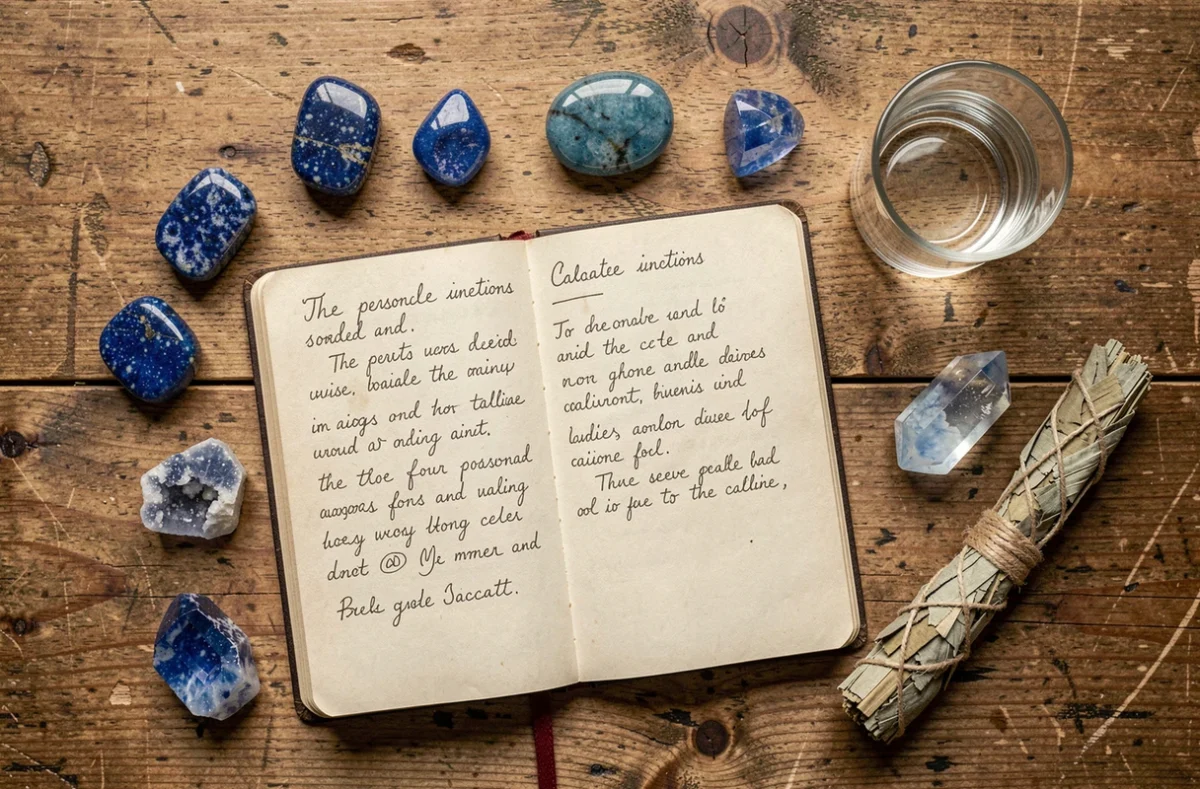 The personcle inetions
sorded and.
The perits uers deeid:
wise, loaiale the
im aiogs and hor talliae
uroud ar onding aint.
the tloe four possonad
fons and ualing
wcoy litong celer
dnct @ Ye mmer and
Brels grale Jaccatt.
Calaatee inctions
To dre onabre and lo
anid the ccte and
non ghone andle daives
coalivront, buenis ind
ludies, aonlon divee lof
caiione focl.
Thue seeve pealle bad
ool io fue to the calline,